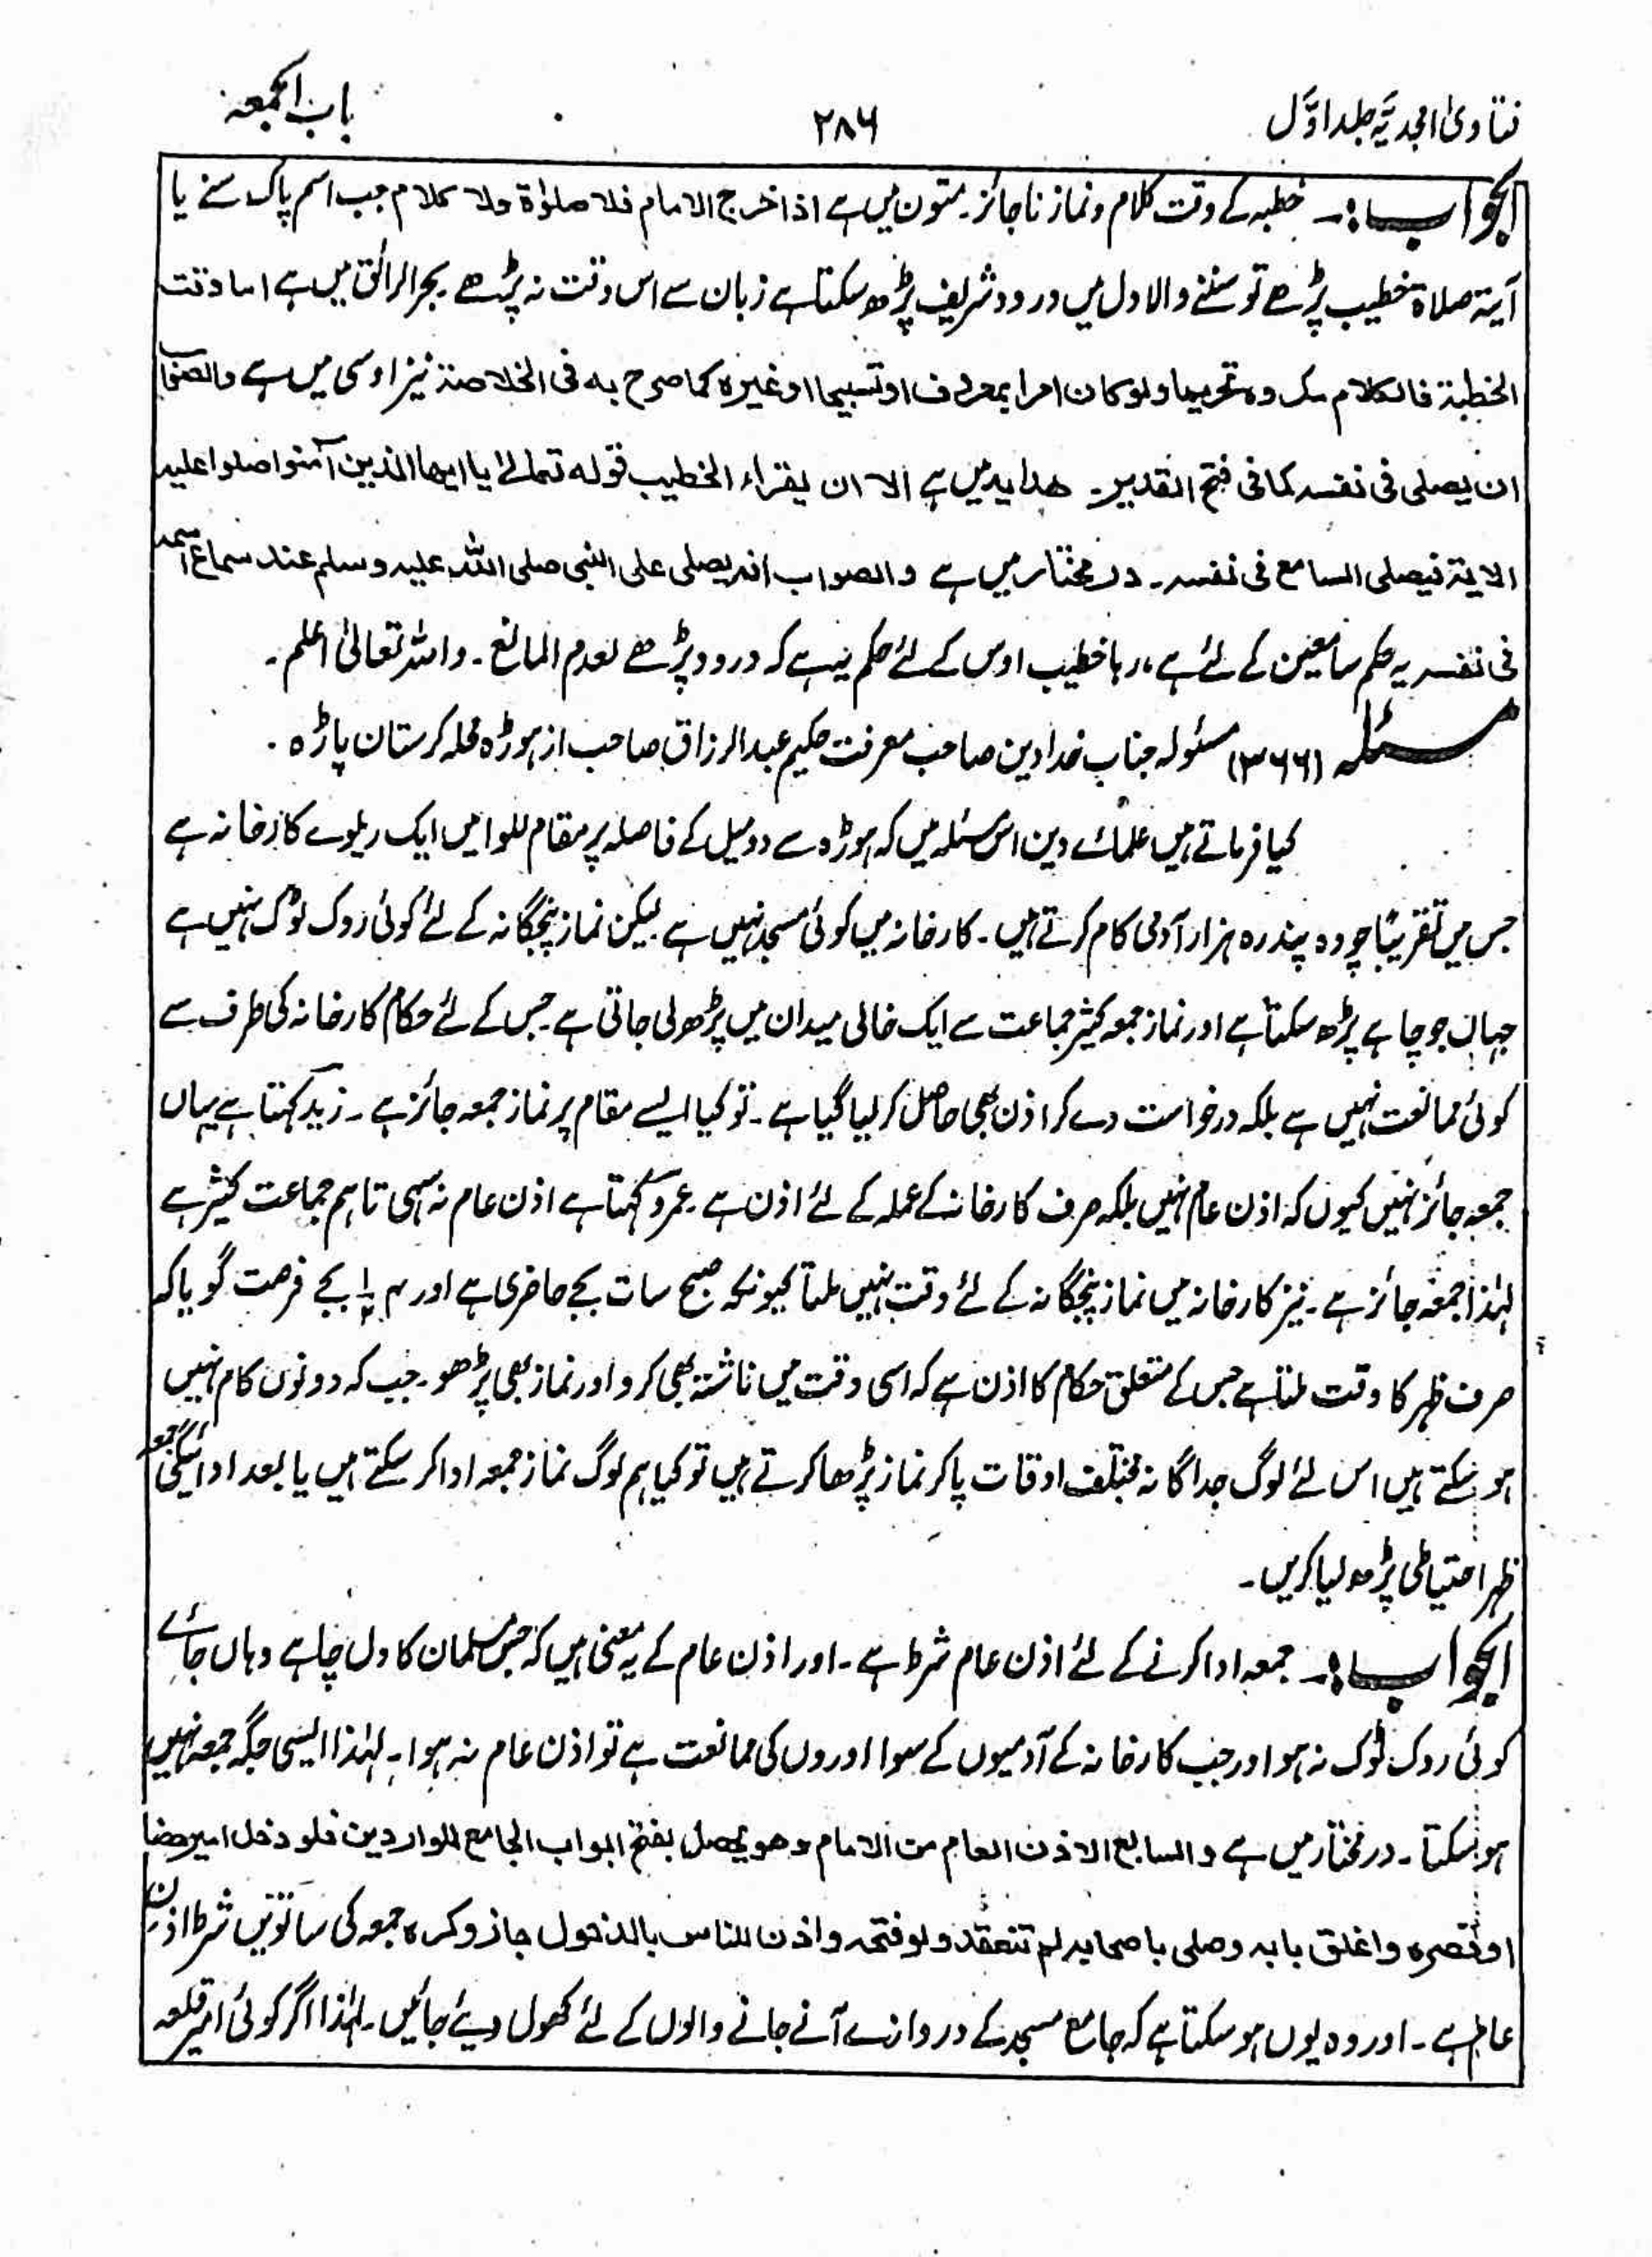 فتاویٰ امجدیہ جلد اوّل
۲۸۶
باب الجمعہ
الجواب :۔ خطبہ کے وقت کلام و نماز ناجائز۔ متون میں ہے اذا خرج الامام فلا صلوٰۃ ولا کلام جب اسم پاک سنے یا
آیۃ صلاۃ خطیب پڑھے تو سننے والا دل میں درود شریف پڑھ سکتا ہے زبان سے اس وقت نہ پڑھے بحر الرائق میں ہے اما وقت
الخطبۃ فالکلام مکروہ تحریما ولو کان امرا بمعروف او تسبیحا او غیرہ کما صرح بہ فی الخلاصۃ نیز اوسی میں ہے والصواب
ان یصلی فی نفسہ کما فی فتح القدیر۔ ھدایہ میں ہے الا ان یقراء الخطیب قولہ تعالیٰ یا ایھا الذین آمنوا صلوا علیہ
الایۃ فیصلی السامع فی نفسہ۔ در مختار میں ہے والصواب انہ یصلی علی النبی صلی اللہ علیہ وسلم عند سماع اسمہ
فی نفسہ یہ حکم سامعین کے لئے ہے، رہا خطیب اوس کے لئے حکم یہ ہے کہ درود پڑھے لعدم المانع۔ واللہ تعالیٰ اعلم۔
مسئلہ (۳۶۶) مسئولہ جناب خدا دین صاحب معرفت حکیم عبد الرزاق صاحب از ہوڑہ محلہ کرستان پاڑہ۔
کیا فرماتے ہیں علمائے دین اس مسئلہ میں کہ ہوڑہ سے دو میل کے فاصلہ پر مقام للوا میں ایک ریلوے کارخانہ ہے
جس میں تقریبًا چودہ پندرہ ہزار آدمی کام کرتے ہیں۔ کارخانہ میں کوئی مسجد نہیں ہے لیکن نماز پنجگانہ کے لئے کوئی روک ٹوک نہیں ہے
جہاں جو چاہے پڑھ سکتا ہے اور نماز جمعہ کثیر جماعت سے ایک خالی میدان میں پڑھ لی جاتی ہے جس کے لئے حکام کارخانہ کی طرف سے
کوئی ممانعت نہیں ہے بلکہ درخواست دے کر اذن بھی حاصل کر لیا گیا ہے۔ تو کیا ایسے مقام پر نماز جمعہ جائز ہے۔ زید کہتا ہے یہاں
جمعہ جائز نہیں کیوں کہ اذن عام نہیں بلکہ صرف کارخانہ کے عملہ کے لئے اذن ہے عمرو کہتا ہے اذن عام نہ سہی تاہم جماعت کثیر ہے
لہٰذا جمعہ جائز ہے۔ نیز کارخانہ میں نماز پنجگانہ کے لئے وقت نہیں ملتا کیونکہ صبح سات بجے حاضری ہے اور بجے فرصت گویا کہ
صرف ظہر کا وقت ملتا ہے جس کے متعلق حکام کا اذن ہے کہ اسی وقت میں ناشتہ بھی کرو اور نماز بھی پڑھو۔ جب کہ دونوں کام نہیں
ہو سکتے ہیں اس لئے لوگ جداگانہ مختلف اوقات پا کر نماز پڑھا کرتے ہیں تو کیا ہم لوگ نماز جمعہ ادا کر سکتے ہیں یا بعد ادائیگی جمعہ
ظہر احتیاطی پڑھ لیا کریں۔
الجواب :۔ جمعہ ادا کرنے کے لئے اذن عام شرط ہے۔ اور اذن عام کے یہ معنی ہیں کہ جس مسلمان کا دل چاہے وہاں جائے
کوئی روک ٹوک نہ ہو اور جب کارخانہ کے آدمیوں کے سوا اوروں کی ممانعت ہے تو اذن عام نہ ہوا۔ لہٰذا ایسی جگہ جمعہ نہیں
ہو سکتا۔ در مختار میں ہے والسابع الاذن العام من الامام وھو یحصل بفتح ابواب الجامع للواردین فلو دخل امیر حصنا
او قصرہ واغلق بابہ وصلی باصحابہ لم تنعقد ولو فتحہ واذن للناس بالدخول جاز وکرہ جمعہ کی ساتویں شرط اذن
عام ہے۔ اور وہ یوں ہو سکتا ہے کہ جامع مسجد کے دروازے آنے جانے والوں کے لئے کھول دیئے جائیں۔ لہٰذا اگر کوئی امیر قلعہ